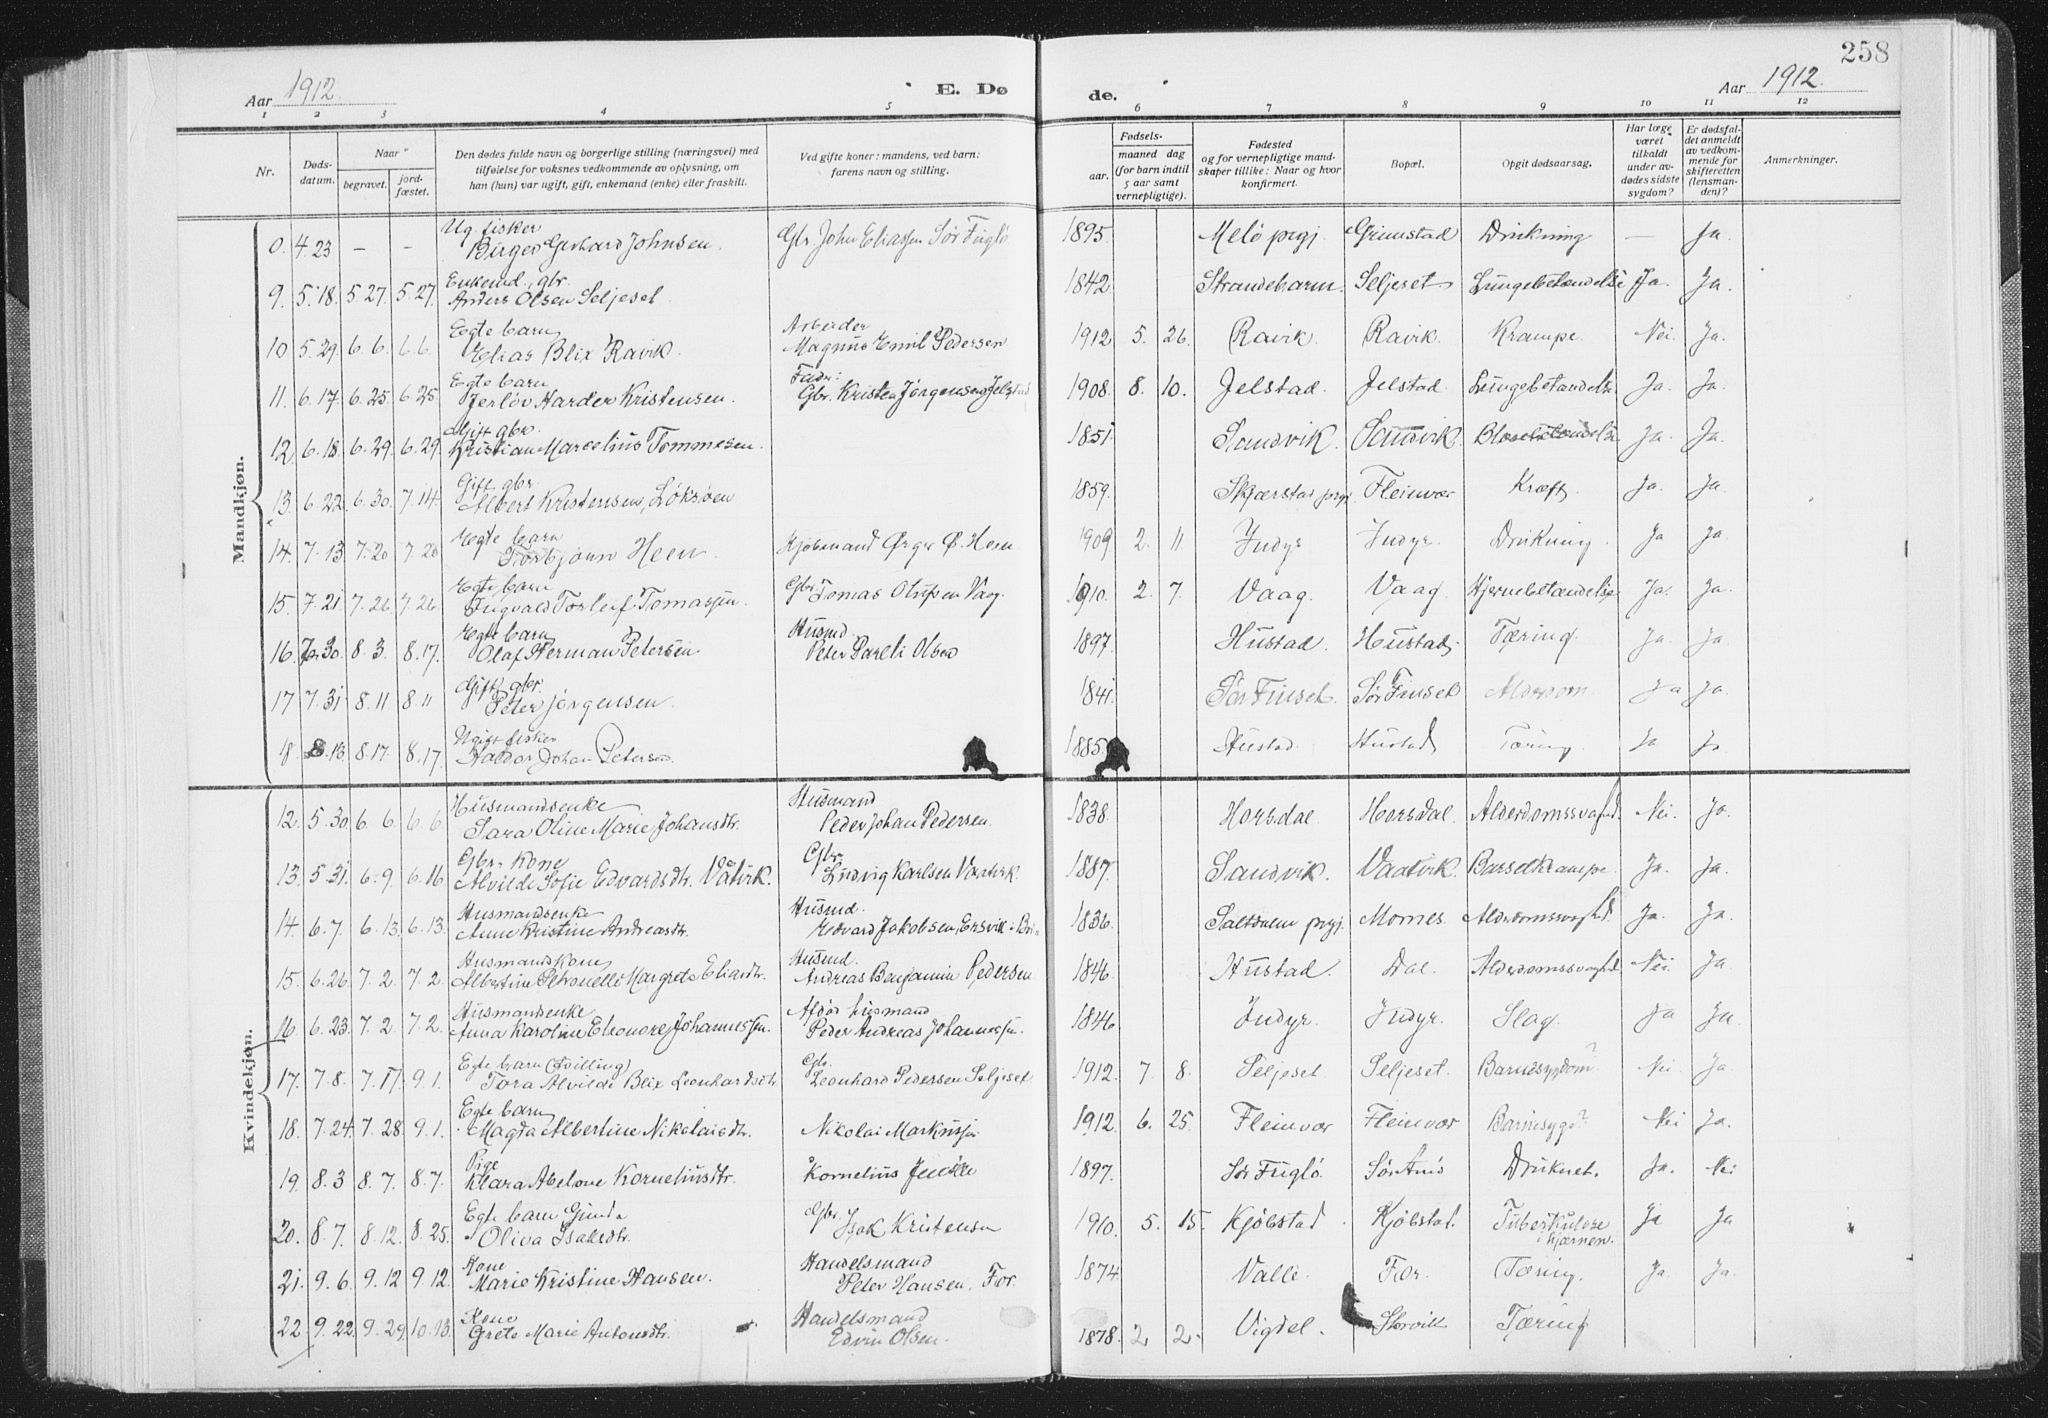 258
Aar 1912. E. Dø de. Aar 1912.
1 2 3 4 5 6 7 8 9 10 11 12
Nr. Døds-datum. Naar begravet. jord-fæstet. Den dødes fulde navn og borgerlige stilling (næringsvei) med tilføielse for voksnes vedkommende av oplysning, om han (hun) var ugift, gift, enkemand (enke) eller fraskilt. Ved gifte koner: mandens, ved barn: farens navn og stilling. Fødsels- aar. maaned dag (for barn indtil 5 aar samt vernepligtige). Fødested og for vernepligtige mandskaper tillike: Naar og hvor konfirmert. Bopæl. Opgit dødsaarsag. Har læge været tilkaldt under avdødes sidste sygdom? Er dødsfaldet anmeldt av vedkommende for skifteretten (lensmanden)? Anmerkninger.
Mandkjøn.
Ug. fisker
0. 4.23 — — Birger Gerhard Johnsen. Gbr. John Eliassen Sør Fuglø 1895. Melø prgj. Grimstad Drukning — Ja.
Enkemd., gbr.
9. 5.18. 5.27. 5.27. Anders Olsen Seljeset 1842 Strandebarm. Seljeset Lungebetændelse Ja. Ja.
Egte barn Arbeider
10 5.29. 6.6. 6.6. Elias Blix Ravik. Magnus Emil Pedersen 1912 5. 26. Ravik. Ravik. Krampe. Nei. Ja.
Egte barn Fader:
11. 6.17. 6.25. 6.25. Jerløv Harder Kristensen. Gbr. Kristen Jørgensen Jelstad 1908. 8. 10. Jelstad. Jelstad. Lungebetændelse. Ja. Ja.
Gift gbr.
12. 6.18. 6.29. 6.29. Kristian Marcelius Tommesen. 1851 Sandvik. Sandvik. Ja. Ja.
Gift gbr.
13. 6.22. 6.30. 7.14. Albert Kristensen, Løksøen 1859. Skjærstad prgj. Fleinvær Kræft. Ja. Ja.
Egte barn
14. 7.13. 7.20 7.20 Torbjørn Heen. Kjøbmand Ørger Ø. Heen 1909 2. 11. Indyr Indyr. Drukning. Ja Ja.
Egte barn
15. 7.21. 7.26. 7.26. Ingvald Torleif Tomassen. Gbr. Tomas Olufsen Vaag. 1910. 2. 7. Vaag. Vaag. Hjernebetændelse Ja. Ja.
Egte barn Husmd.
16. 7.30. 8.3. 8.17. Olaf Herman Petersen Peter Pareli Olsen 1897. Hustad. Hustad. Tæring. Ja. Ja.
Gift gbr.
17 7.31. 8.11 8.11 Peter Jørgensen. 1841. Sør Finset. Sør Finset Alderdom. Ja Ja.
Ugift fisker
18. 8.13. 8.17. 8.17. Haldor Johan Petersen. 1885. Hustad. Hustad Tæring Ja Ja
Kvindekjøn.
Husmandsenke Husmand
12. 5.30. 6.6. 6.6. Sara Oline Marie Johansdtr. Peder Johan Pedersen. 1838. Horsdal. Horsdal. Alderdomssvaghd. Nei. Ja.
Gbr. kone Gbr.
13. 5.31. 6.9. 6.16 Alvilde Sofie Edvardsdtr. Våtvik. Ludvig Karlsen Vaatvik 1887. Sandvik. Vaatvik. Barselkrampe. Ja. Ja.
Husmandsenke Husmd.
14. 6.7. 6.13. 6.13. Anne Kristine Andreasdtr. Edvard Jakobsen, Ersvik 1836. Saltdalen prgj. Mornes. Alderdomssvaghd. Ja. Ja.
Husmandskone Husmd.
15. 6.26. 7.2. 7.2. Albertine Petronelle Margrete Eliasdtr. Andreas Benjamin Pedersen 1846. Hustad. Dal. Alderdomssvaghd. Nei. Ja.
Husmandsenke Afdød husmand
16 6.23. 7.2. 7.2. Anna Karoline Eleonore Johannessen. Peder Andreas Johannessen. 1846. Indyr. Indyr. Slag. Ja Ja.
Egte barn (tvilling) Gbr.
17. 7.8. 7.17. 9.1. Tora Alvilde Blix Leonhardsdtr. Leonhard Pedersen Seljeset 1912. 7. 8. Seljeset. Seljeset. Barnesygdom? Nei. Ja.
Egte barn
18. 7.24. 7.28. 9.1. Magda Albertine Nikolaisdtr. Nikolai Markussen 1912. 6. 25. Fleinvær Fleinvær Barnesygd? Nei Ja.
Pige
19. 8.3 8.7. 8.7. Klara Abelone Korneliusdtr. Kornelius 1897. Sør Fuglø. Sør Arnø Druknet. Ja. Nei
Egte barn Gunda Gbr.
20. 8.7. 8.12. 8.25. Oliva Isaksdtr. Isak Kristensen 1910 5. 15. Kjøbstad. Kjøbstad. Tuberkulose i hjærnen. Ja Ja
Kone Handelsmand
21. 9.6. 9.12 9.12. Marie Kristine Hansen. Peter Hansen, For. 1874. Valle. For. Tæring. Ja. Ja.
Kone Handelsmand
22 9.22. 9.29. 10.13. Grete Marie Antonsdtr. Edvin Olsen. 1878. 2 2. Vigdel. Storvik Tæring